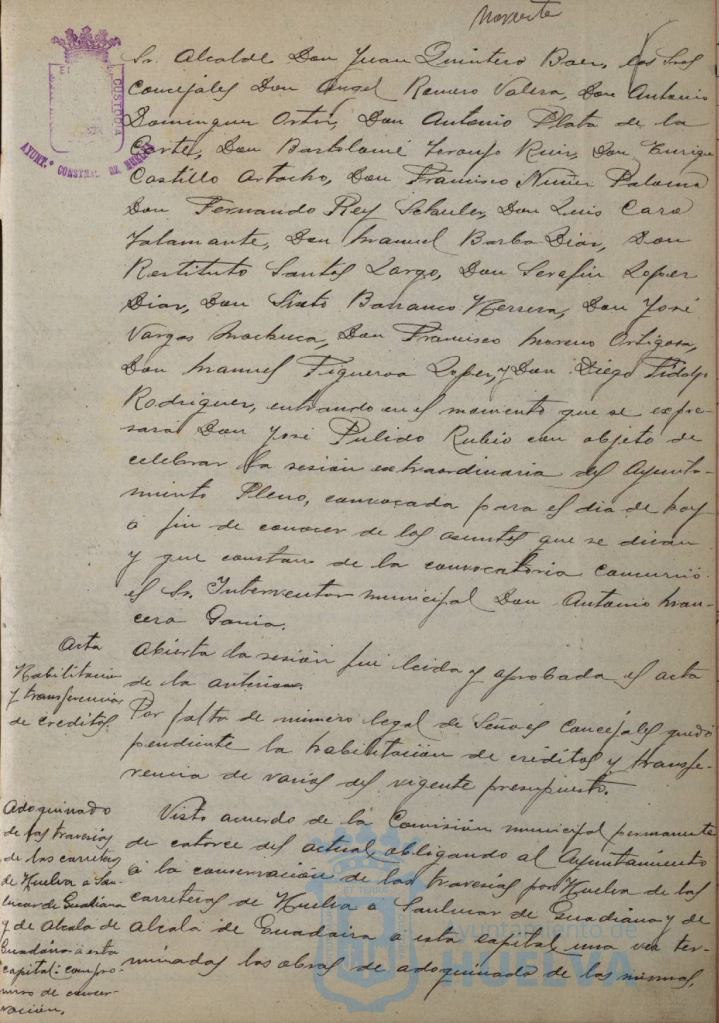 Noventa
Sr. Alcalde Don Juan Quintero Baez, los Sres
Concejales Don Angel Romero Valera, Don Antonio
Dominguez Ortiz, Don Antonio Plata de la
Corte, Don Bartolomé Ruiz, Don Enrique
Castillo Artacho, Don Francisco Nuñez Paloma
Don Fernando Rey Schuler, Don Luis Caro
Talamante, Don Manuel Barba Diaz, Don
Restituto Santos Largo, Don Serafin Lopez
Diaz, Don Sixto Barranco Herrera, Don José
Vargas Machuca, Don Francisco Moreno Ortigosa,
Don Manuel Figueroa Lopez, y Don Diego Fidalgo
Rodriguez, entrando en el momento que se expre-
sará Don José Pulido Rubio con objeto de
celebrar la sesión extraordinaria del Ayunta-
miento Pleno, convocada para el dia de hoy
a fin de conocer de los asuntos que se dirán
y que constan de la convocatoria. Concurrió
el Sr. Interventor municipal Don Antonio Man-
cera Garcia.
Acta
Abierta la sesión fué leida y aprobada el acta
de la anterior.
Habilitación
y transferencias
de creditos.
Por falta de número legal de Señores Concejales quedó
pendiente la habilitación de créditos y transfe-
rencia de varios del vigente presupuesto.
Adoquinado
de las travesias
de las carreteras
de Huelva a San-
lucar de Guadiana
y de Alcala de
Guadaira a esta
capital: compro-
miso de conser-
vación.
Visto acuerdo de la Comisión municipal permanente
de catorce del actual, obligando al Ayuntamiento
a la conservación de las travesias por Huelva de las
carreteras de Huelva a Sanlucar de Guadiana y de
Alcalá de Guadaira a esta capital una vez ter-
minadas las obras de adoquinado de las mismas,
CUSTODIA
AYUNT.º CONSTNAL. DE HUELVA
Ayuntamiento de
HUELVA